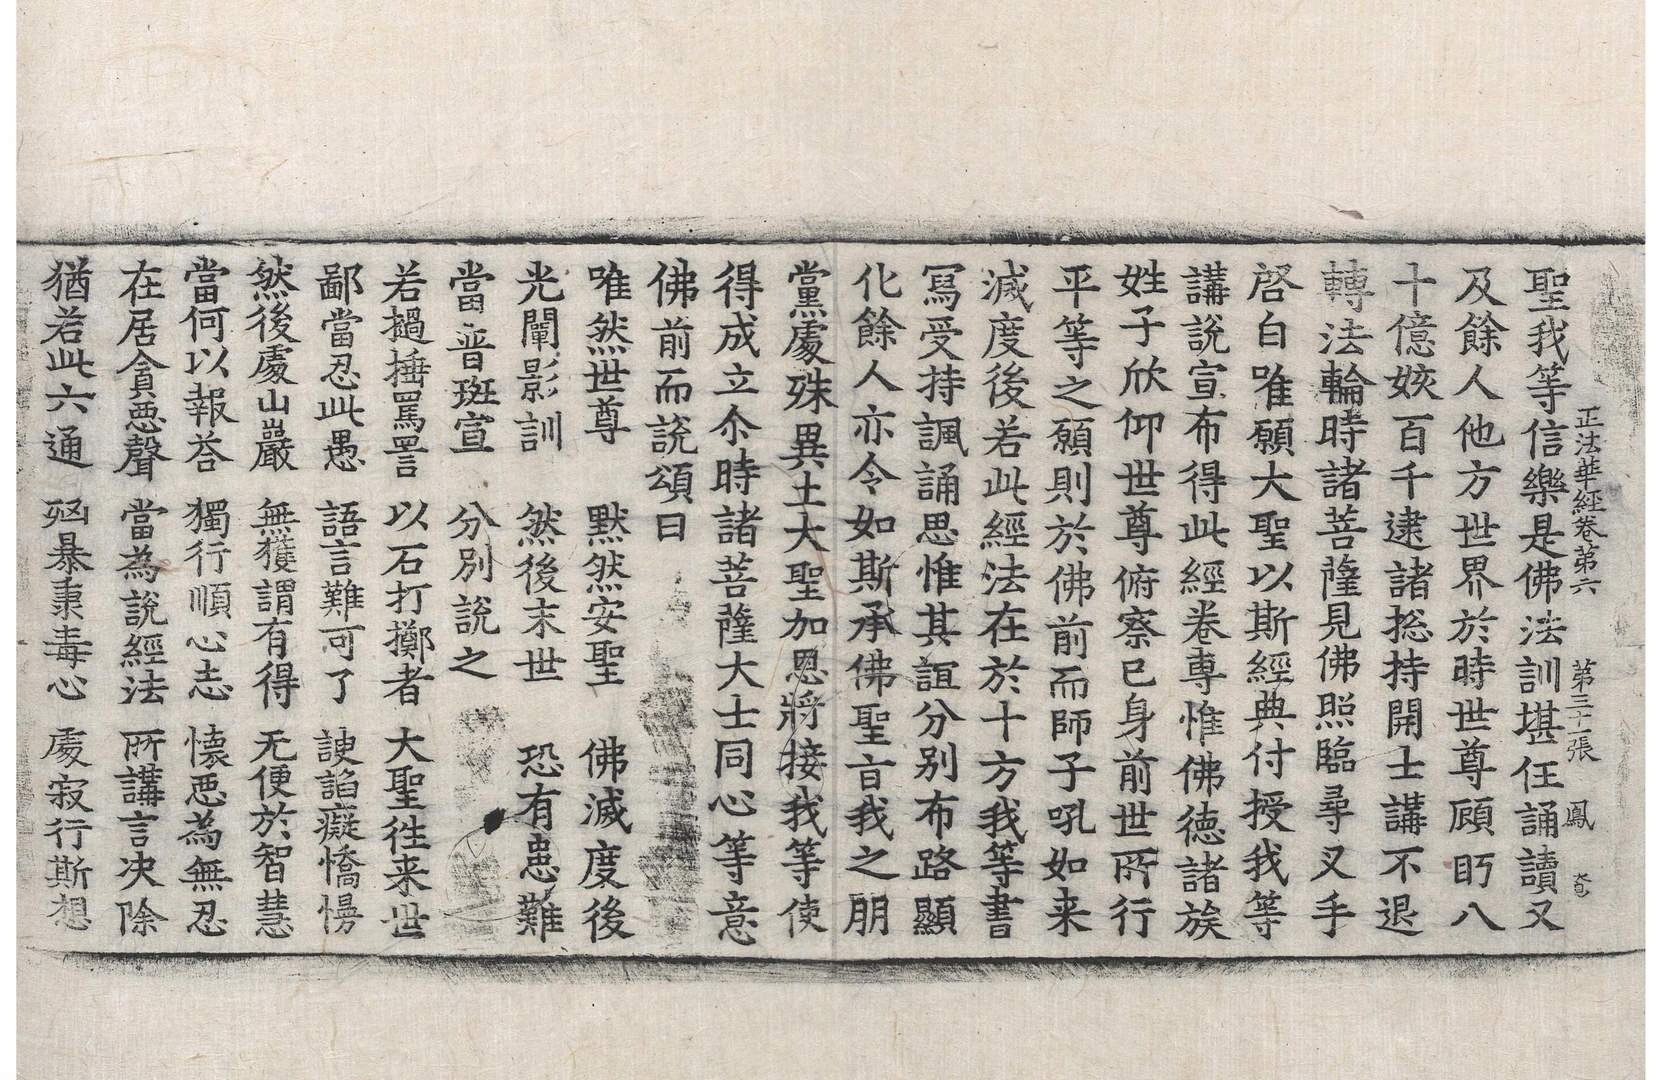 正法華經卷第六 第三十一張 鳳
聖我等信樂是佛法訓堪任誦讀又
及餘人他方世界於時世尊顧眄八
十億姟百千逮諸捴持開士講不退
轉法輪時諸菩薩見佛照臨尋叉手
啓白唯願大聖以斯經典付授我等
講說宣布得此經卷專惟佛德諸族
姓子欣仰世尊俯察已身前世所行
平等之願則於佛前而師子吼如来
滅度後若此經法在於十方我等書
寫受持諷誦思惟其誼分别布路顯
化餘人亦令如斯承佛聖旨我之朋
黨處殊異土大聖加恩將接我等使
得成立尒時諸菩薩大士同心等意
佛前而說頌曰
唯然世尊 默然安聖 佛滅度後
光闡影訓 然後末世 恐有患難
當普班宣 分別說之
若撾捶罵詈 以石打擲者 大聖徃来世
鄙當忍此愚 語言難可了 諛諂癡憍慢
然後處山巖 無獲謂有得 无便於智慧
當何以報荅 獨行順心志 懷惡為無忍
在居貪惡聲 當為說經法 所講言决除
猶若此六通 㐫暴秉毒心 處寂行斯想